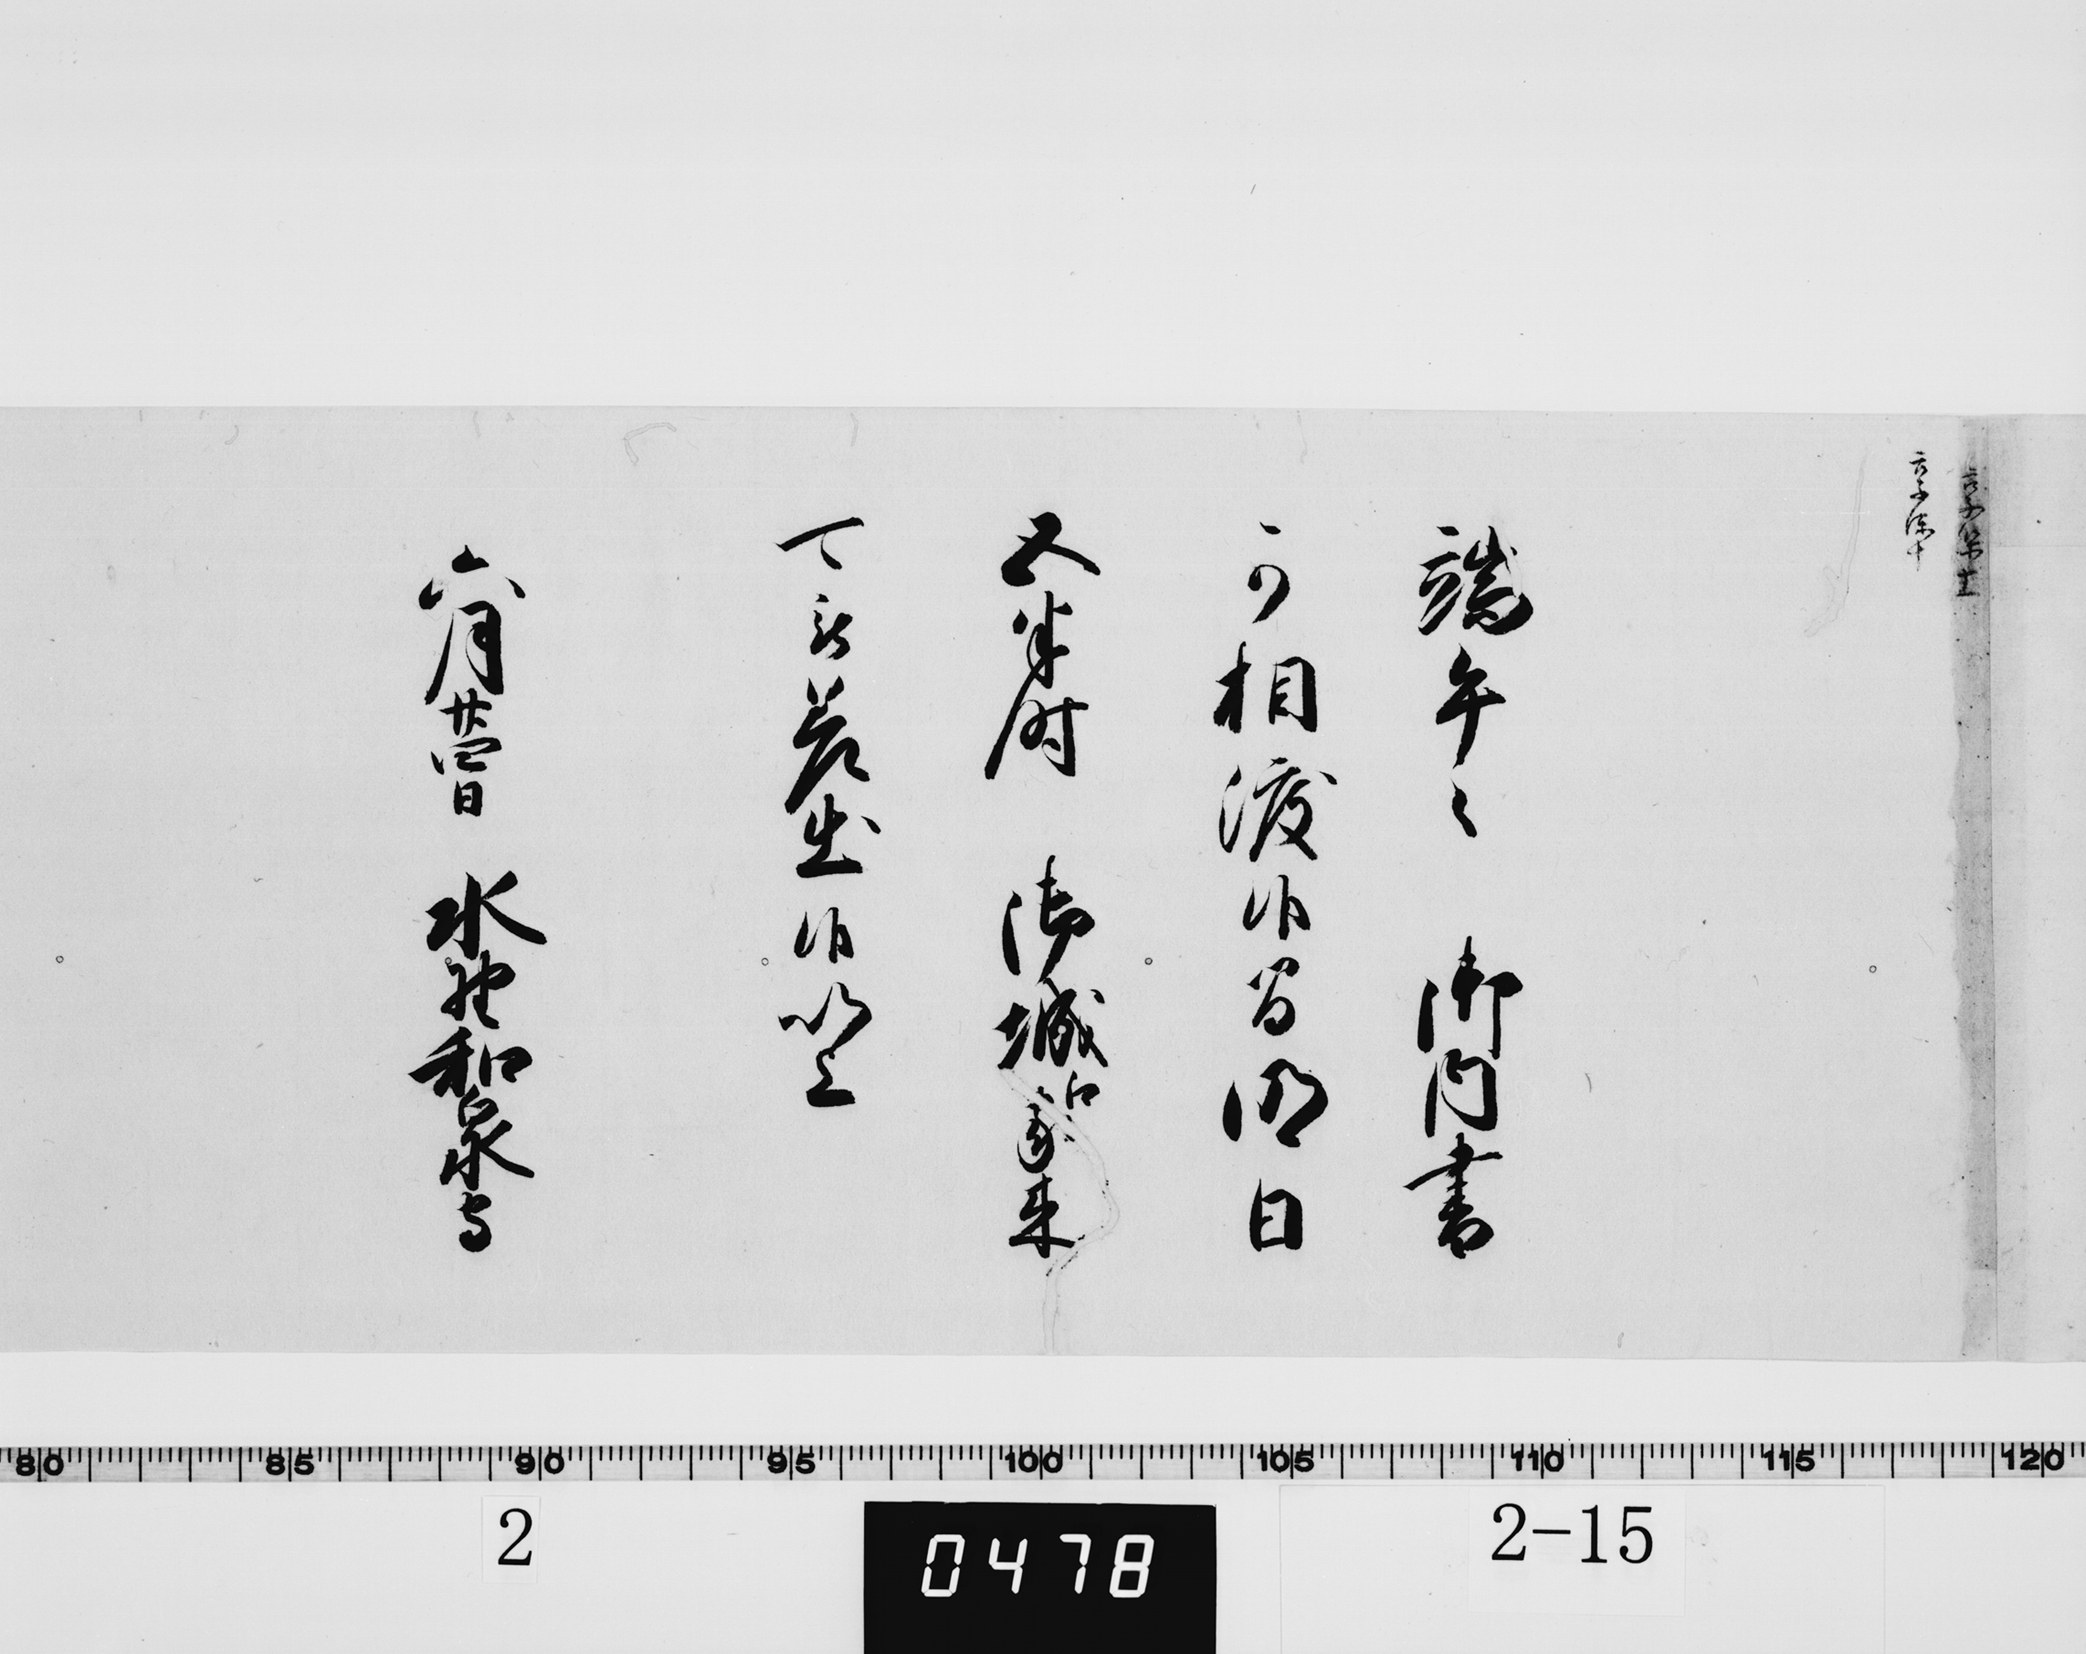 享保十一
享保十
端午之御内書
可相渡候間明日
五半時御城江家来
可被差出候以上
六月廿四日 水野和泉守
80 85 90 95 100 105 110 115 120
2
0478
2-15